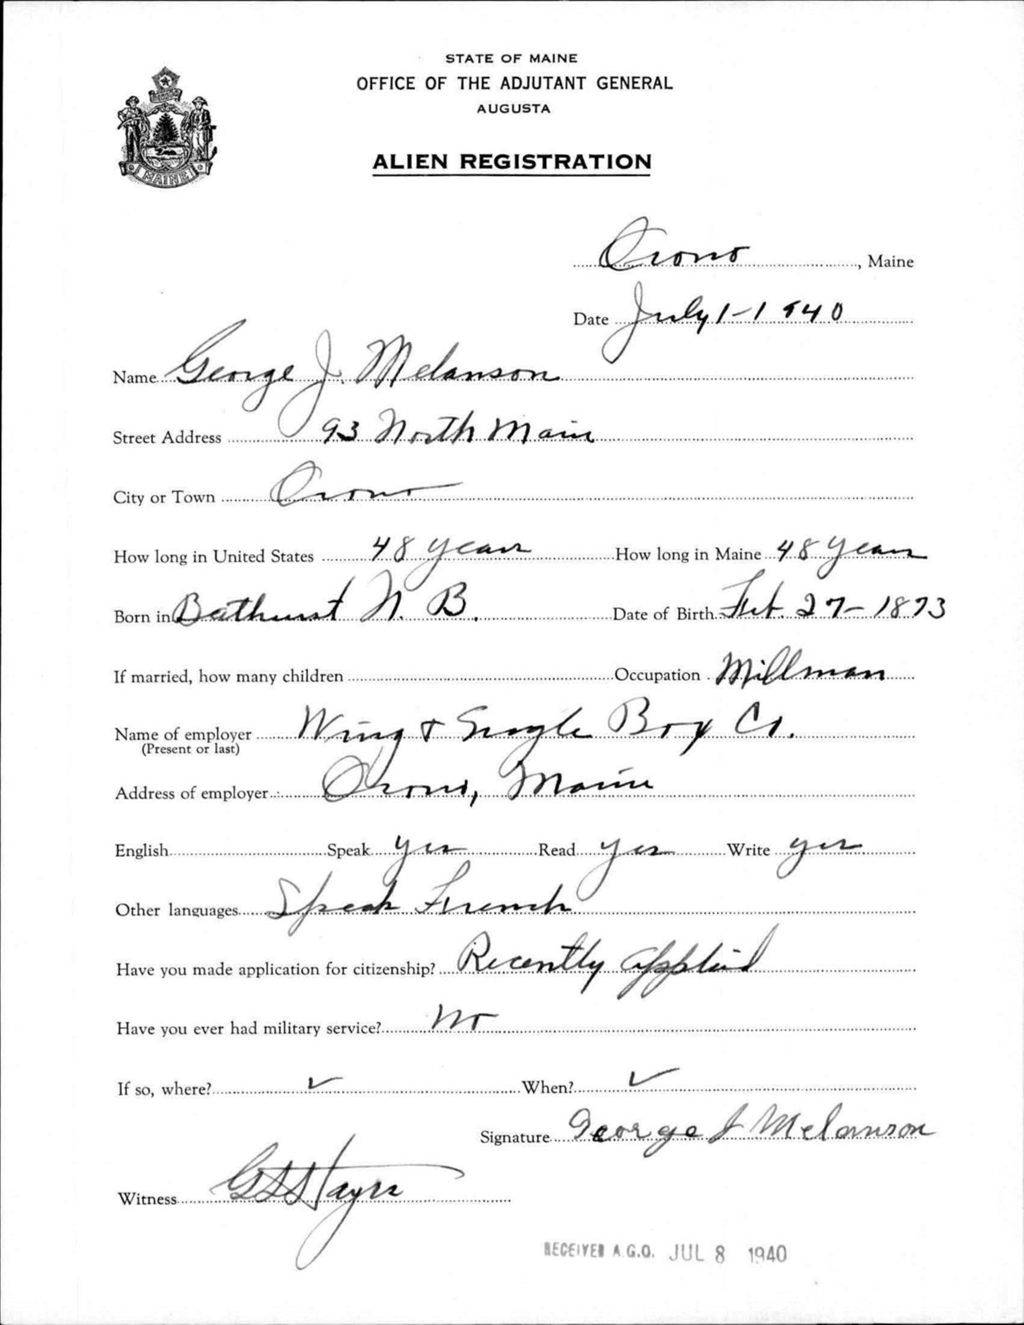 STATE OF MAINE
OFFICE OF THE ADJUTANT GENERAL
AUGUSTA
ALIEN REGISTRATION
MAINE
Orono, Maine
Date July 1-1940
Name George J. Melanson
Street Address 93 North Main
City or Town Orono
How long in United States 48 years How long in Maine 48 years
Born in Bathurst N. B. Date of Birth Feb. 27-1873
If married, how many children Occupation Millman
Name of employer Wing & Engle Box Co.
(Present or last)
Address of employer Orono, Maine
English Speak yes Read yes Write yes
Other languages Speak French
Have you made application for citizenship? Recently applied
Have you ever had military service? No
If so, where? ✓ When? ✓
Signature George J Melanson
Witness Hayes
RECEIVED A.G.O. JUL 8 1940